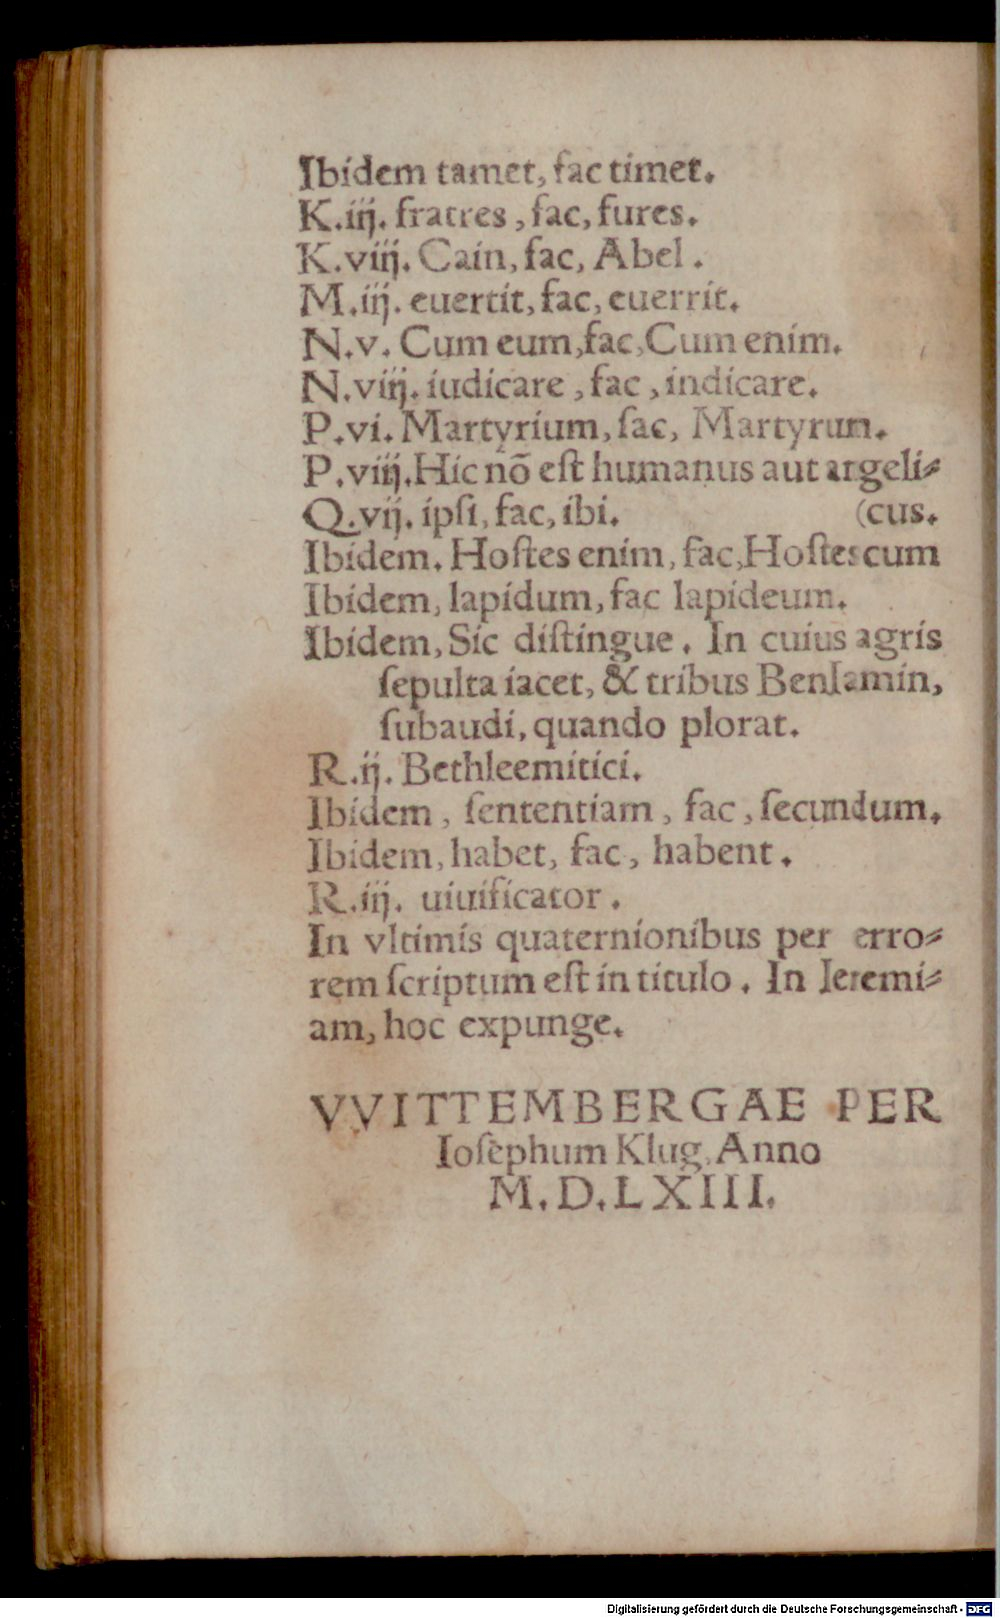 Ibidem tamet, fac timet.
K.iij. fratres, fac, fures.
K.viij. Cain, fac, Abel.
M.iij. euertit, fac, euerrit.
N.v. Cum eum, fac, Cum enim.
N.viij. iudicare, fac, indicare.
P.vi. Martyrium, fac, Martyrum.
P.viij. Hic nõ eſt humanus aut argeli⸗
Q.vij. ipſi, fac, ibi. (cus.
Ibidem. Hoſtes enim, fac, Hoſtes cum
Ibidem, lapidum, fac lapideum.
Ibidem, Sic diſtingue. In cuius agris
ſepulta iacet, & tribus BenIamin,
ſubaudi, quando plorat.
R.ij. Bethleemitici.
Ibidem, ſententiam, fac, ſecundum.
Ibidem, habet, fac, habent.
R.iij. uiuificator.
In vltimis quaternionibus per erro⸗
rem ſcriptum eſt in titulo. In Ieremi⸗
am, hoc expunge.
VVITTEMBERGAE PER
Ioſephum Klug, Anno
M.D.LXIII.
Digitalisierung gefördert durch die Deutsche Forschungsgemeinschaft - DFG